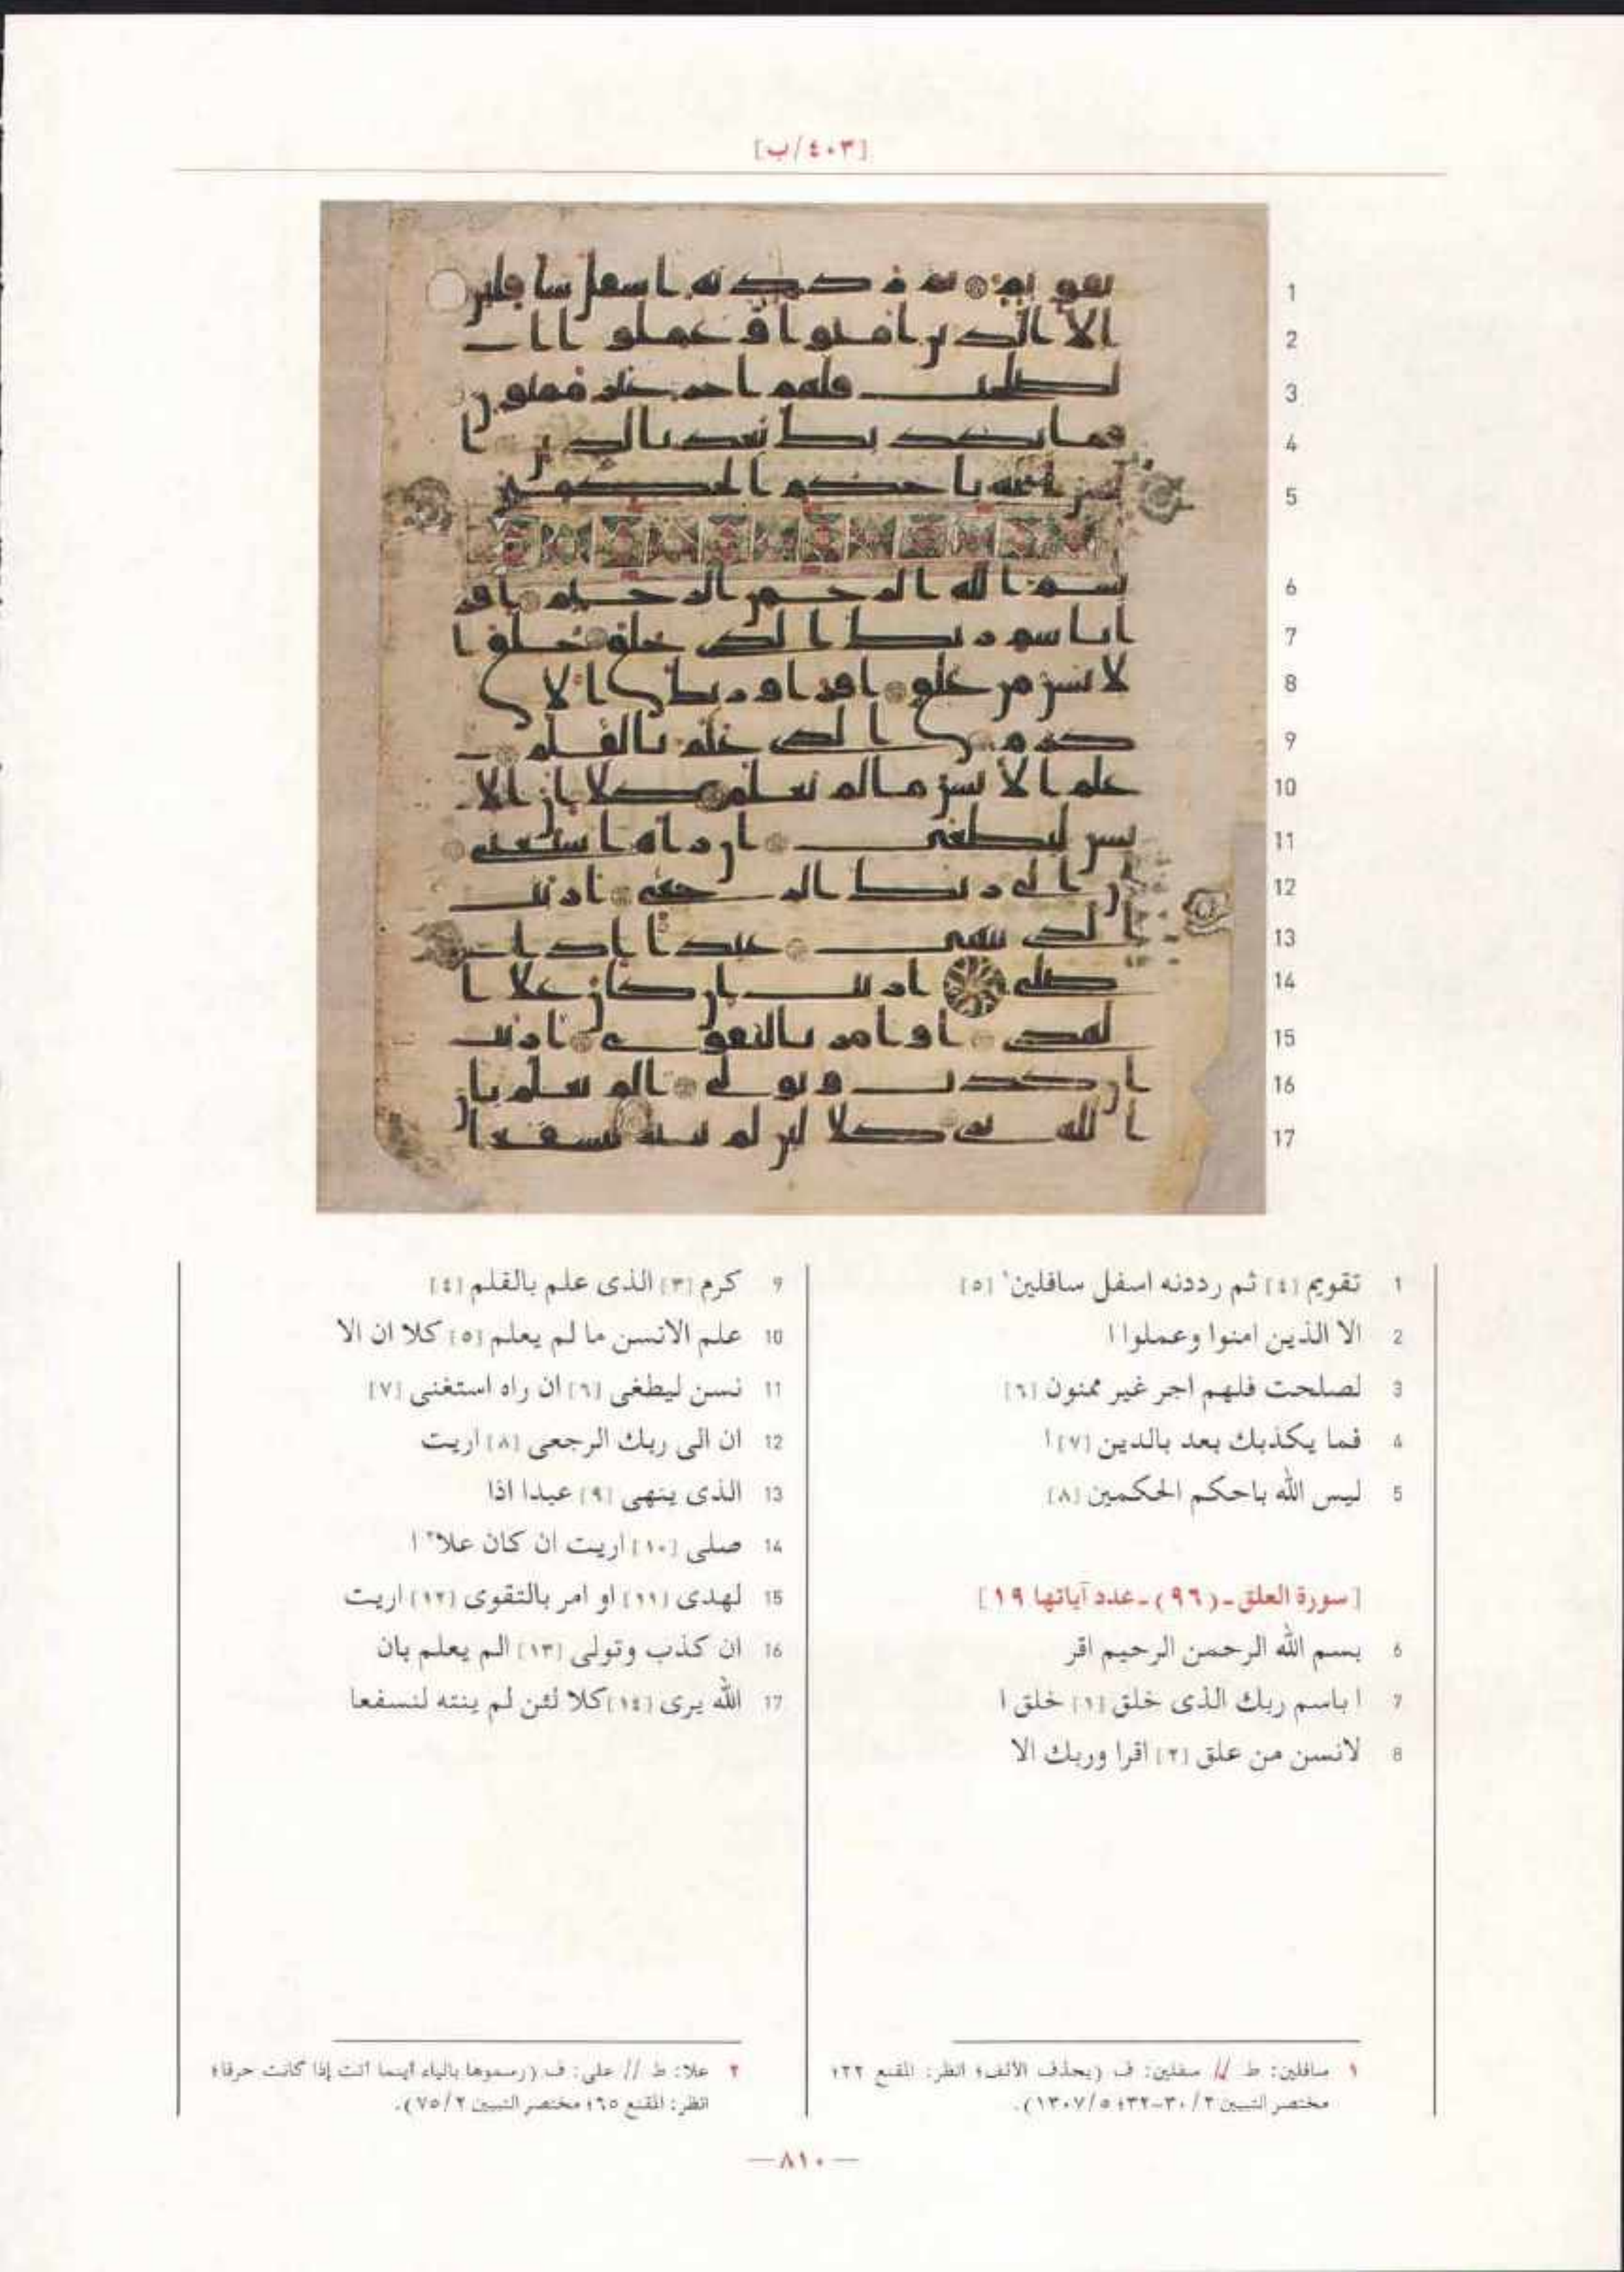 [٤٠٣/ب]
1
2
3
4
5
6
7
8
9
10
11
12
13
14
15
16
17
1 تقويم [٤] ثم رددنه اسفل سافلين١ [٥]
2 الا الذين امنوا وعملوا ا
3 لصلحت فلهم اجر غير ممنون [٦]
4 فما يكذبك بعد بالدين [٧] ا
5 ليس الله باحكم الحكمين [٨]
[سورة العلق-(٩٦)-عدد آياتها ١٩]
6 بسم الله الرحمن الرحيم اقر
7 ا باسم ربك الذى خلق [١] خلق ا
8 لانسن من علق [٢] اقرا وربك الا
9 كرم [٣] الذى علم بالقلم [٤]
10 علم الانسن ما لم يعلم [٥] كلا ان الا
11 نسن ليطغى [٦] ان راه استغنى [٧]
12 ان الى ربك الرجعى [٨] اريت
13 الذى ينهى [٩] عبدا اذا
14 صلى [١٠] اريت ان كان علا٢ ا
15 لهدى [١١] او امر بالتقوى [١٢] اريت
16 ان كذب وتولى [١٣] الم يعلم بان
17 الله يرى [١٤] كلا لئن لم ينته لنسفعا
١ سافلين: ط // سفلين: ف (بحذف الالف؛ انظر: المقنع ٢٢؛
مختصر التبيين ٢/ ٣٠-٣٢؛ ٥/ ١٣٠٧).
٢ علا: ط // على: ف (رسموها بالياء أينما أتت إذا كانت حرفا؛
انظر: المقنع ٦٥؛ مختصر التبيين ٢/ ٧٥).
—٨١٠—